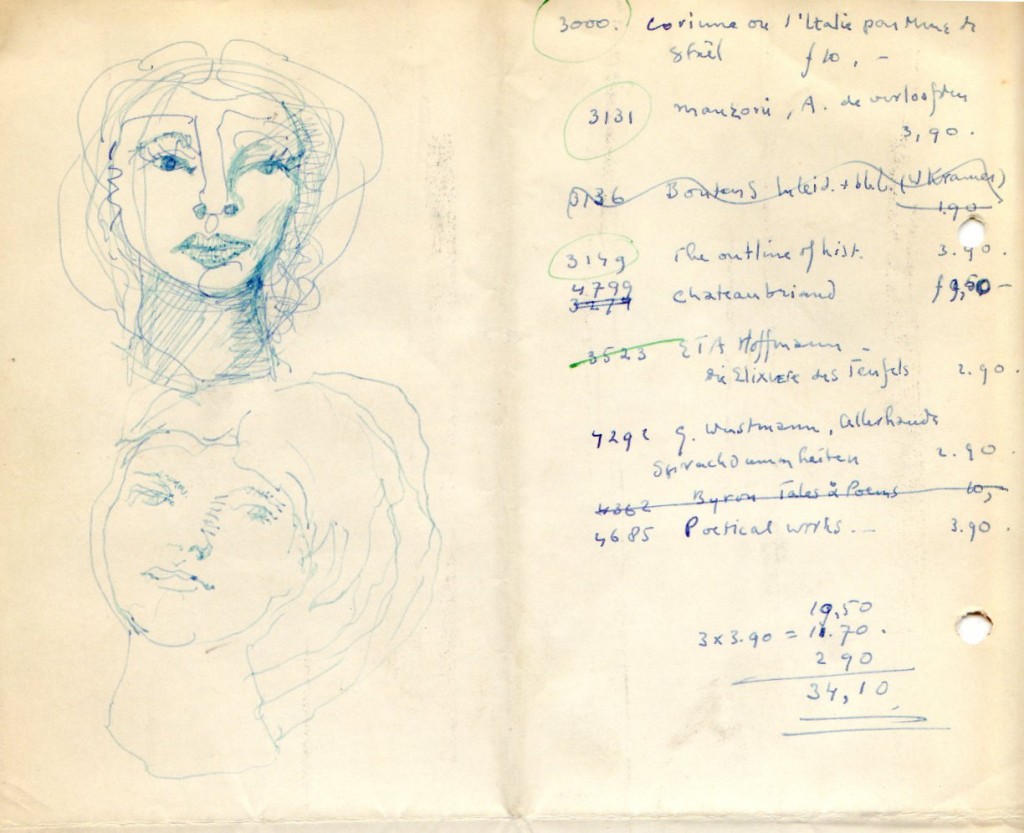 3000. Corinne ou l'Italie par Mme de
Stäel f 10, -
3131 Manzoni, A. de verloofden
3,90.
3136 Boutens Inleid. + bl. (W Kramer)
1.90
3149 The outline of hist. 3.90.
4799 Chateaubriand f 9,50 -
3279
3523 ETA Hoffmann -
Die Elixere des Teufels 2.90.
4292 G. Wustmann, Allerhands
Sprachdummheiten 2.90
4362 Byron Tales & Poems 10,
4685 Poetical works. - 3.90.
19,50
3 x 3.90 = 11.70.
2 90
34,10